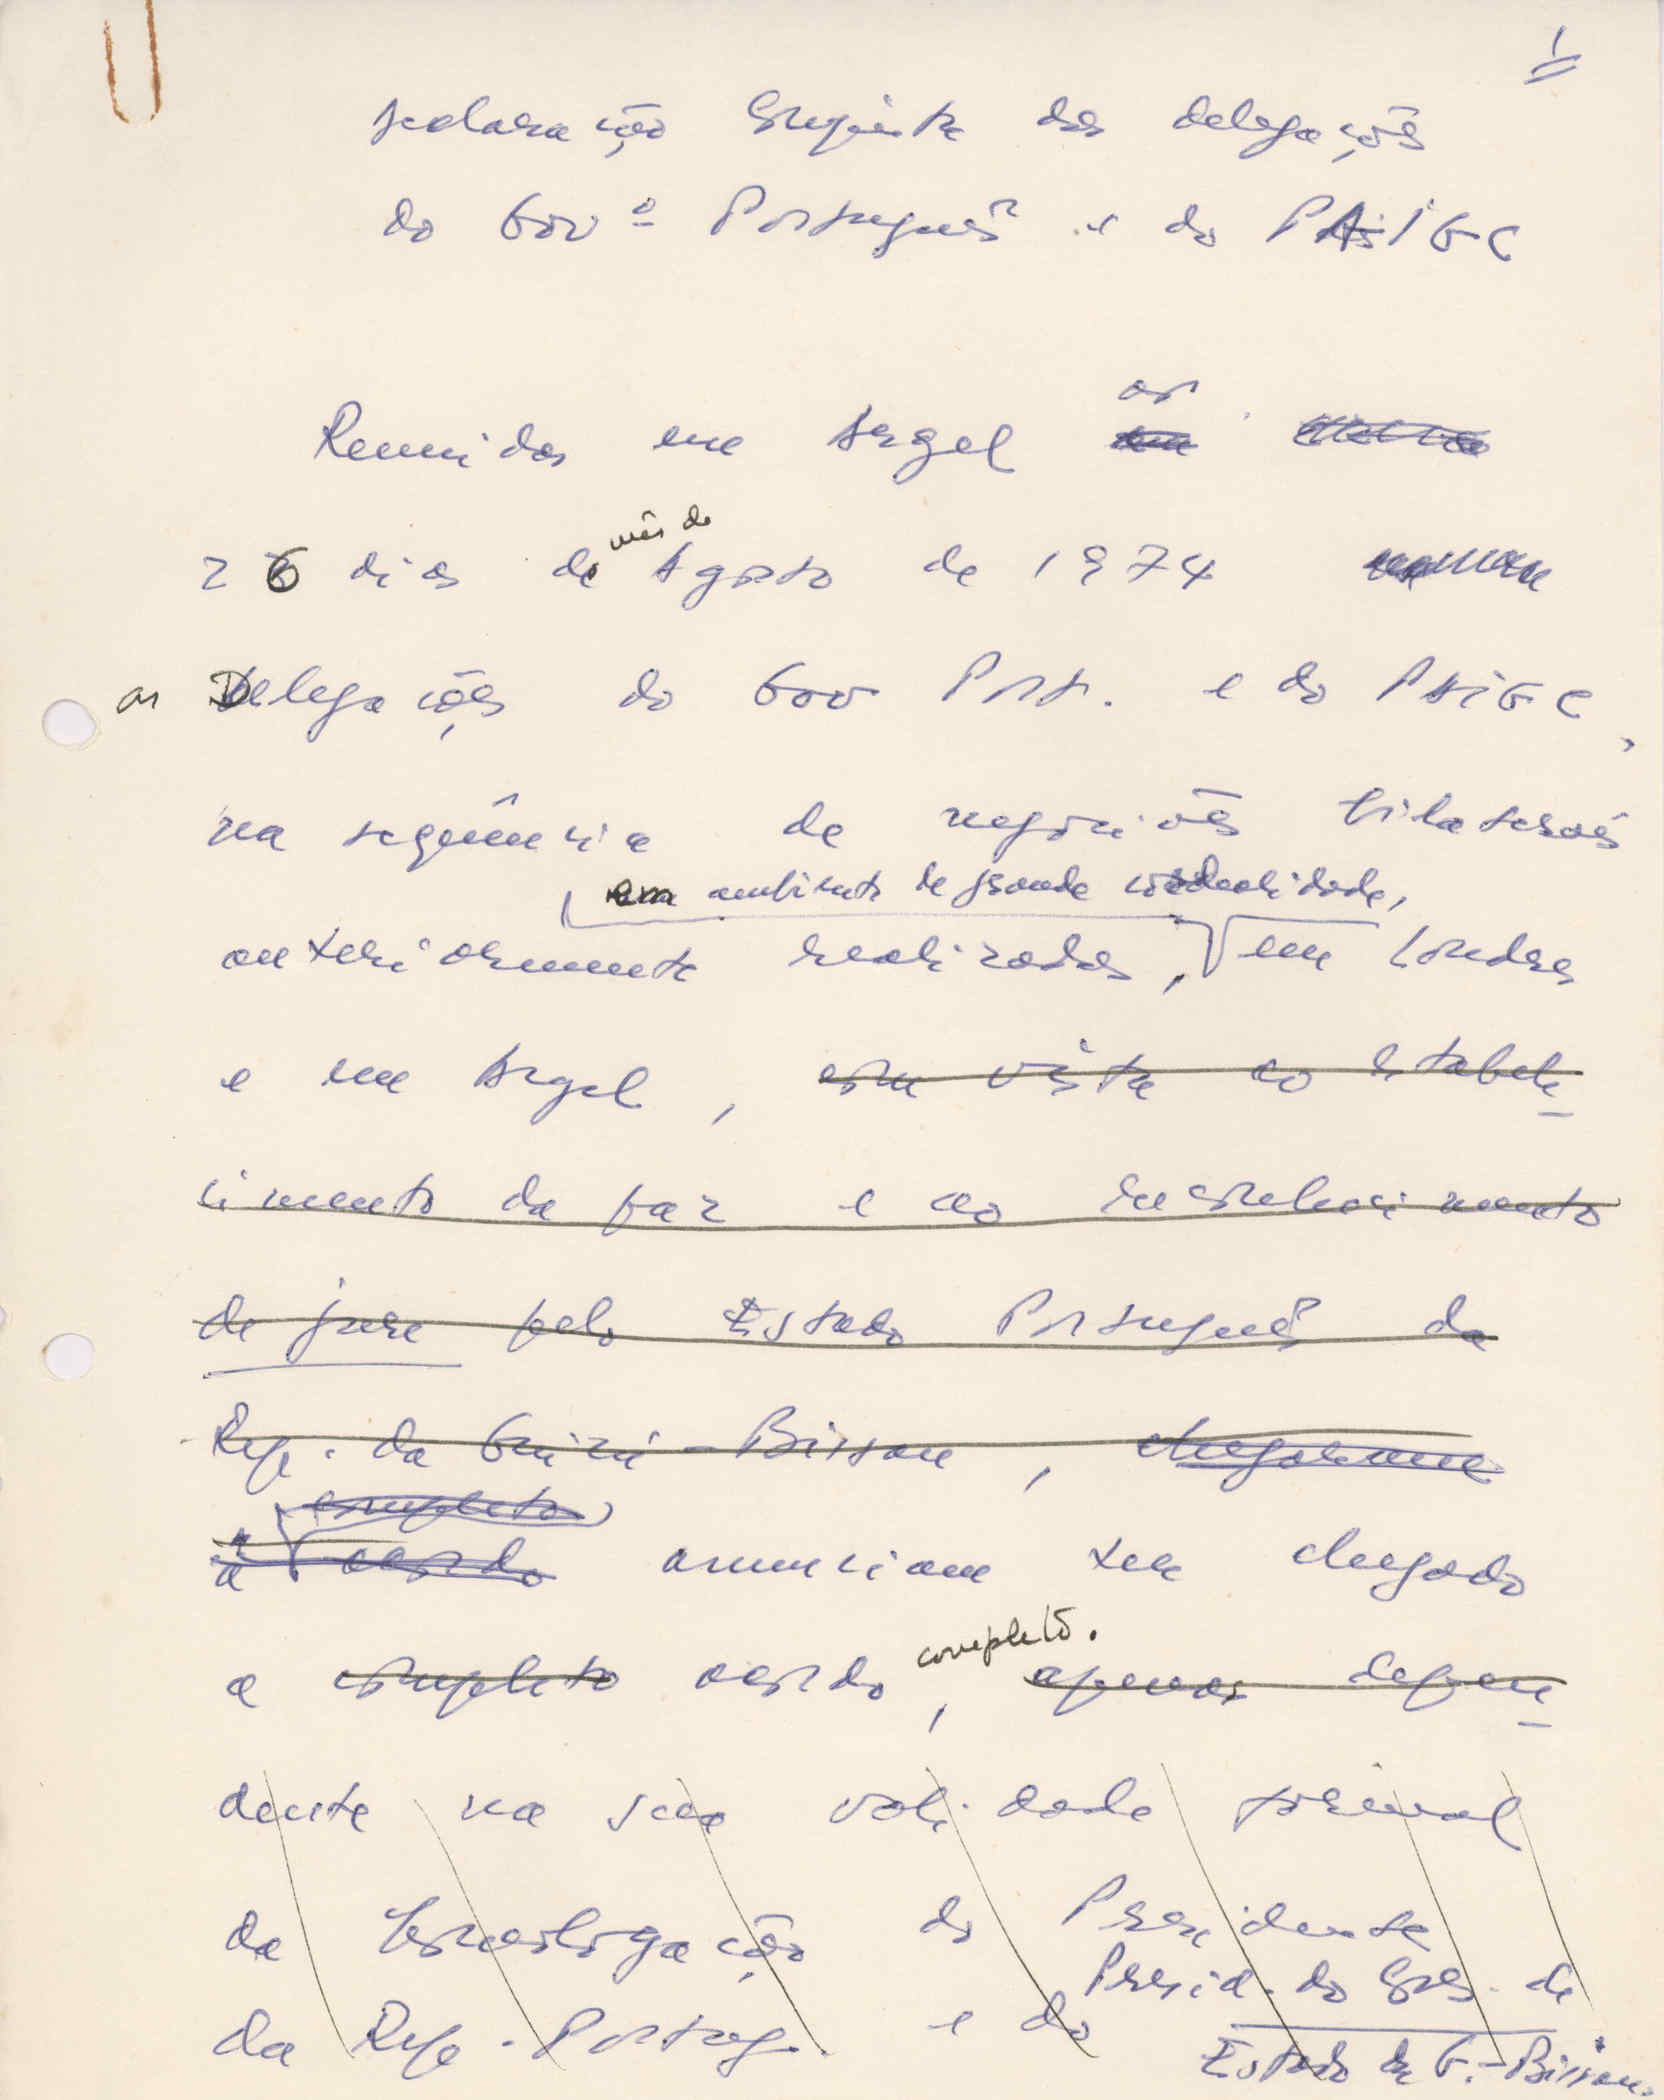 1
Declaração Conjunta das delegações
do Govº Português e do PAIGC
Reunidas em Argel
aos
26 dias de mês de Agosto de 1974
as Delegações do Gov Port. e do PAIGC,
na sequência de negociações bilaterais
em ambiente de grande cordealidade,
anteriormente realizadas, em Londres
e em Argel, com vista ao estabele-
cimento da paz e ao reconhecimento
de jure pelo Estado Português da
Rep. da Guiné-Bissau, chegaram
completo
a acordo anunciam ter chegado
completo.
a completo acordo, apenas depen-
dente na sua validade formal
da homologação do Presidente
Presid. do Cons. de
da Rep. Portug. e do
Estado da G.-Bissau.